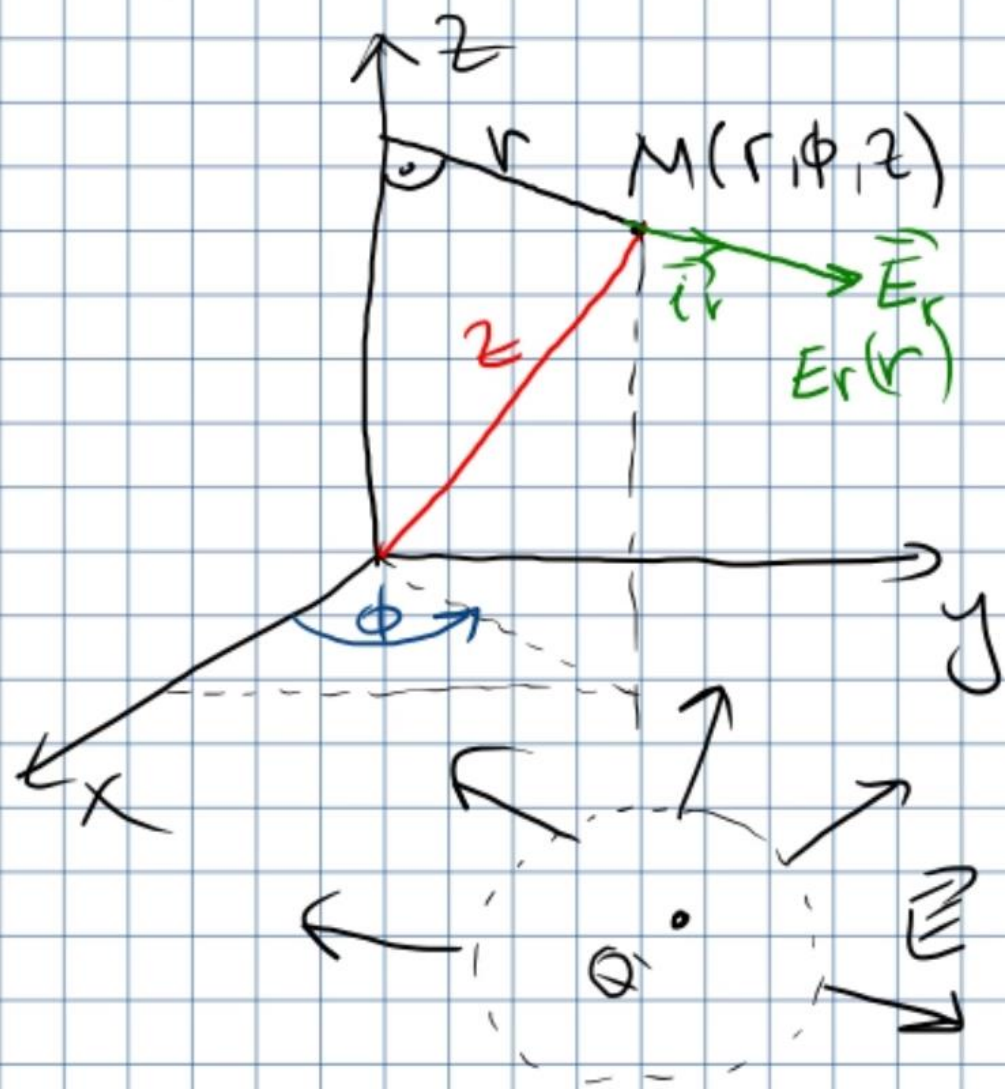 z
r
M(r,φ,z)
i⃗r
E⃗r
z
Er(r)
φ
y
x
E⃗
Q